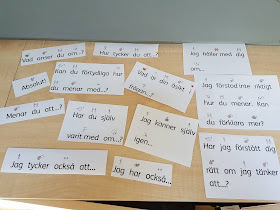 Vad anser du om..?
Hur tycker du att...?
Jag håller med dig
om...
Absolut!
Kan du förtydliga hur
du menar med...?
Vad är din åsikt i
frågan...?
Jag förstod inte riktigt
hur du menar. Kan
du förklara mer?
Menar du att...?
Har du själv
varit med om...?
Jag känner själv
igen...
Har jag förstått dig
rätt om jag tänker
att...?
Jag tycker också att...
Jag har också...